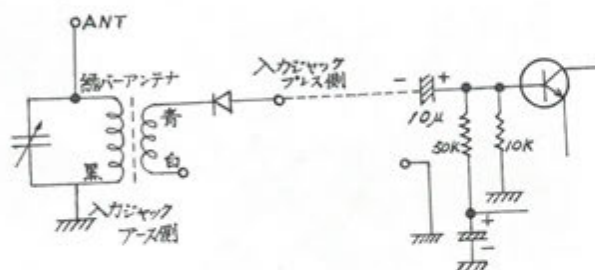 ANT
緑バーアンテナ
黒
青
白
入力ジャック
プラス側
入力ジャック
アース側
- +
10μ
50K
10K
+
-